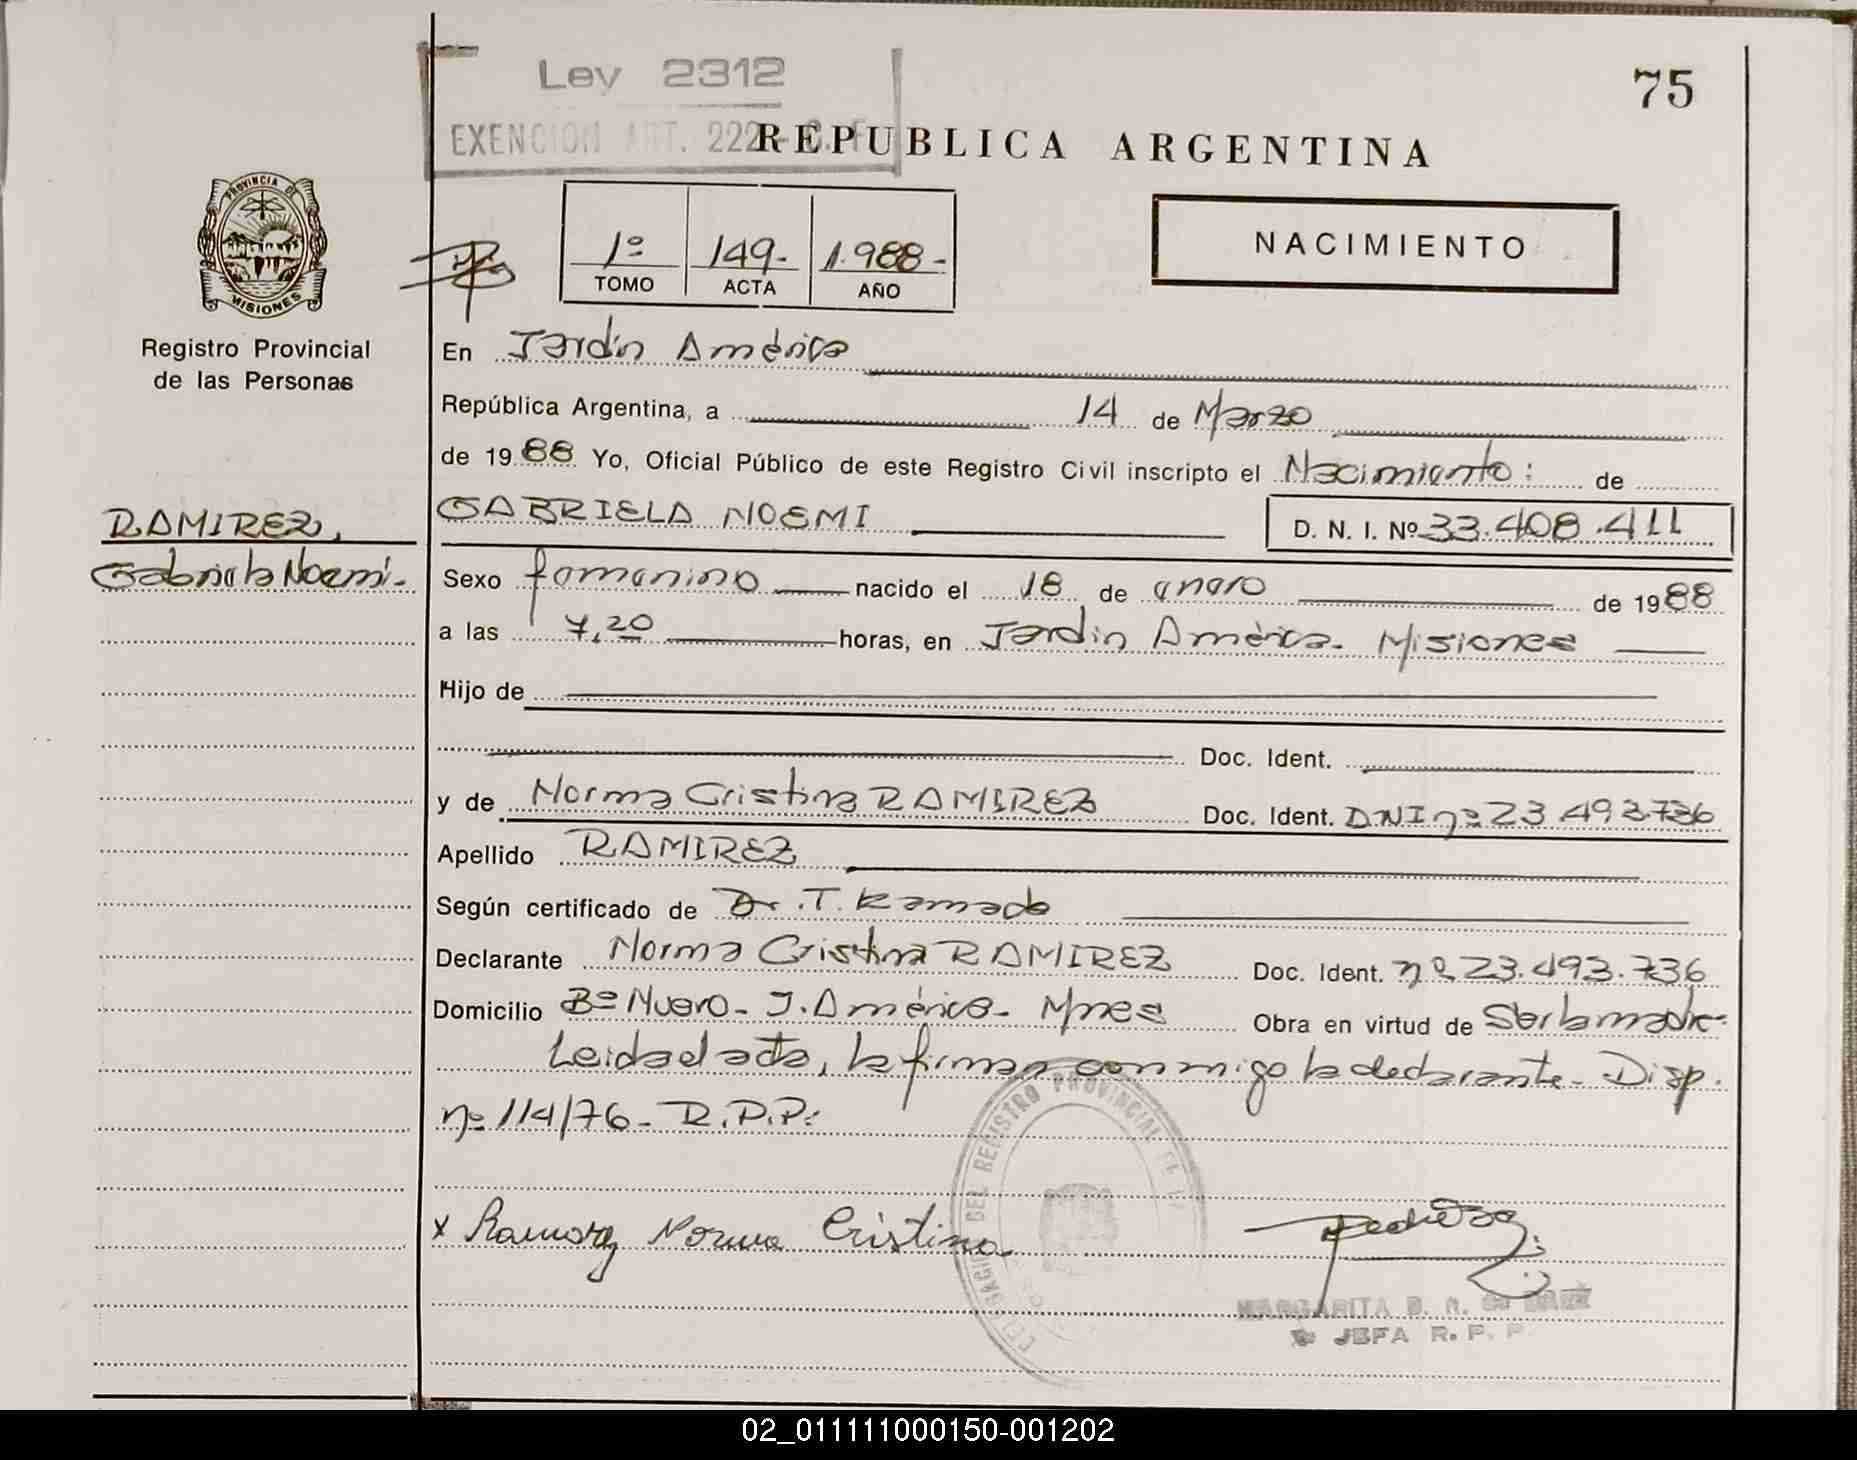 75
Ley 2312
EXENCION ART. 222
REPUBLICA ARGENTINA
PROVINCIA DE
MISIONES
Registro Provincial
de las Personas
1º 149.- 1.988-
TOMO ACTA AÑO
NACIMIENTO
En Jardín América
República Argentina, a 14 de Marzo
de 1988 Yo, Oficial Público de este Registro Civil inscripto el Nacimiento: de
RAMIREZ,
Gabriela Noemí.-
GABRIELA NOEMI D. N. I. Nº 33.408.411
Sexo femenino nacido el 18 de enero de 1988
a las 7,20 horas, en Jardín América- Misiones
Hijo de
Doc. Ident.
y de Norma Cristina RAMIREZ Doc. Ident. DNI nº 23.493.736
Apellido RAMIREZ
Según certificado de Dr. T.
Declarante Norma Cristina RAMIREZ Doc. Ident. nº 23.493.736
Domicilio Bº Nuevo- J. América- Mnes Obra en virtud de Ser la madre.-
Leida el acta, la firma conmigo la declarante- Disp.
nº 114/76- R.P.P.:
DELEGACION DEL REGISTRO PROVINCIAL DE
x Norma Cristina
MARGARITA
JEFA R. P. P.
02_011111000150-001202